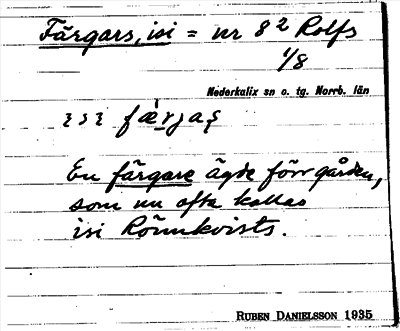 Färgars, isi = nr 8² Rolfs
1/8
Nederkalix sn o. tg. Norrb. län
En färgare ägde förr gården,
som nu ofta kallas
isi Rönnkvists.
RUBEN DANIELSSON 1935